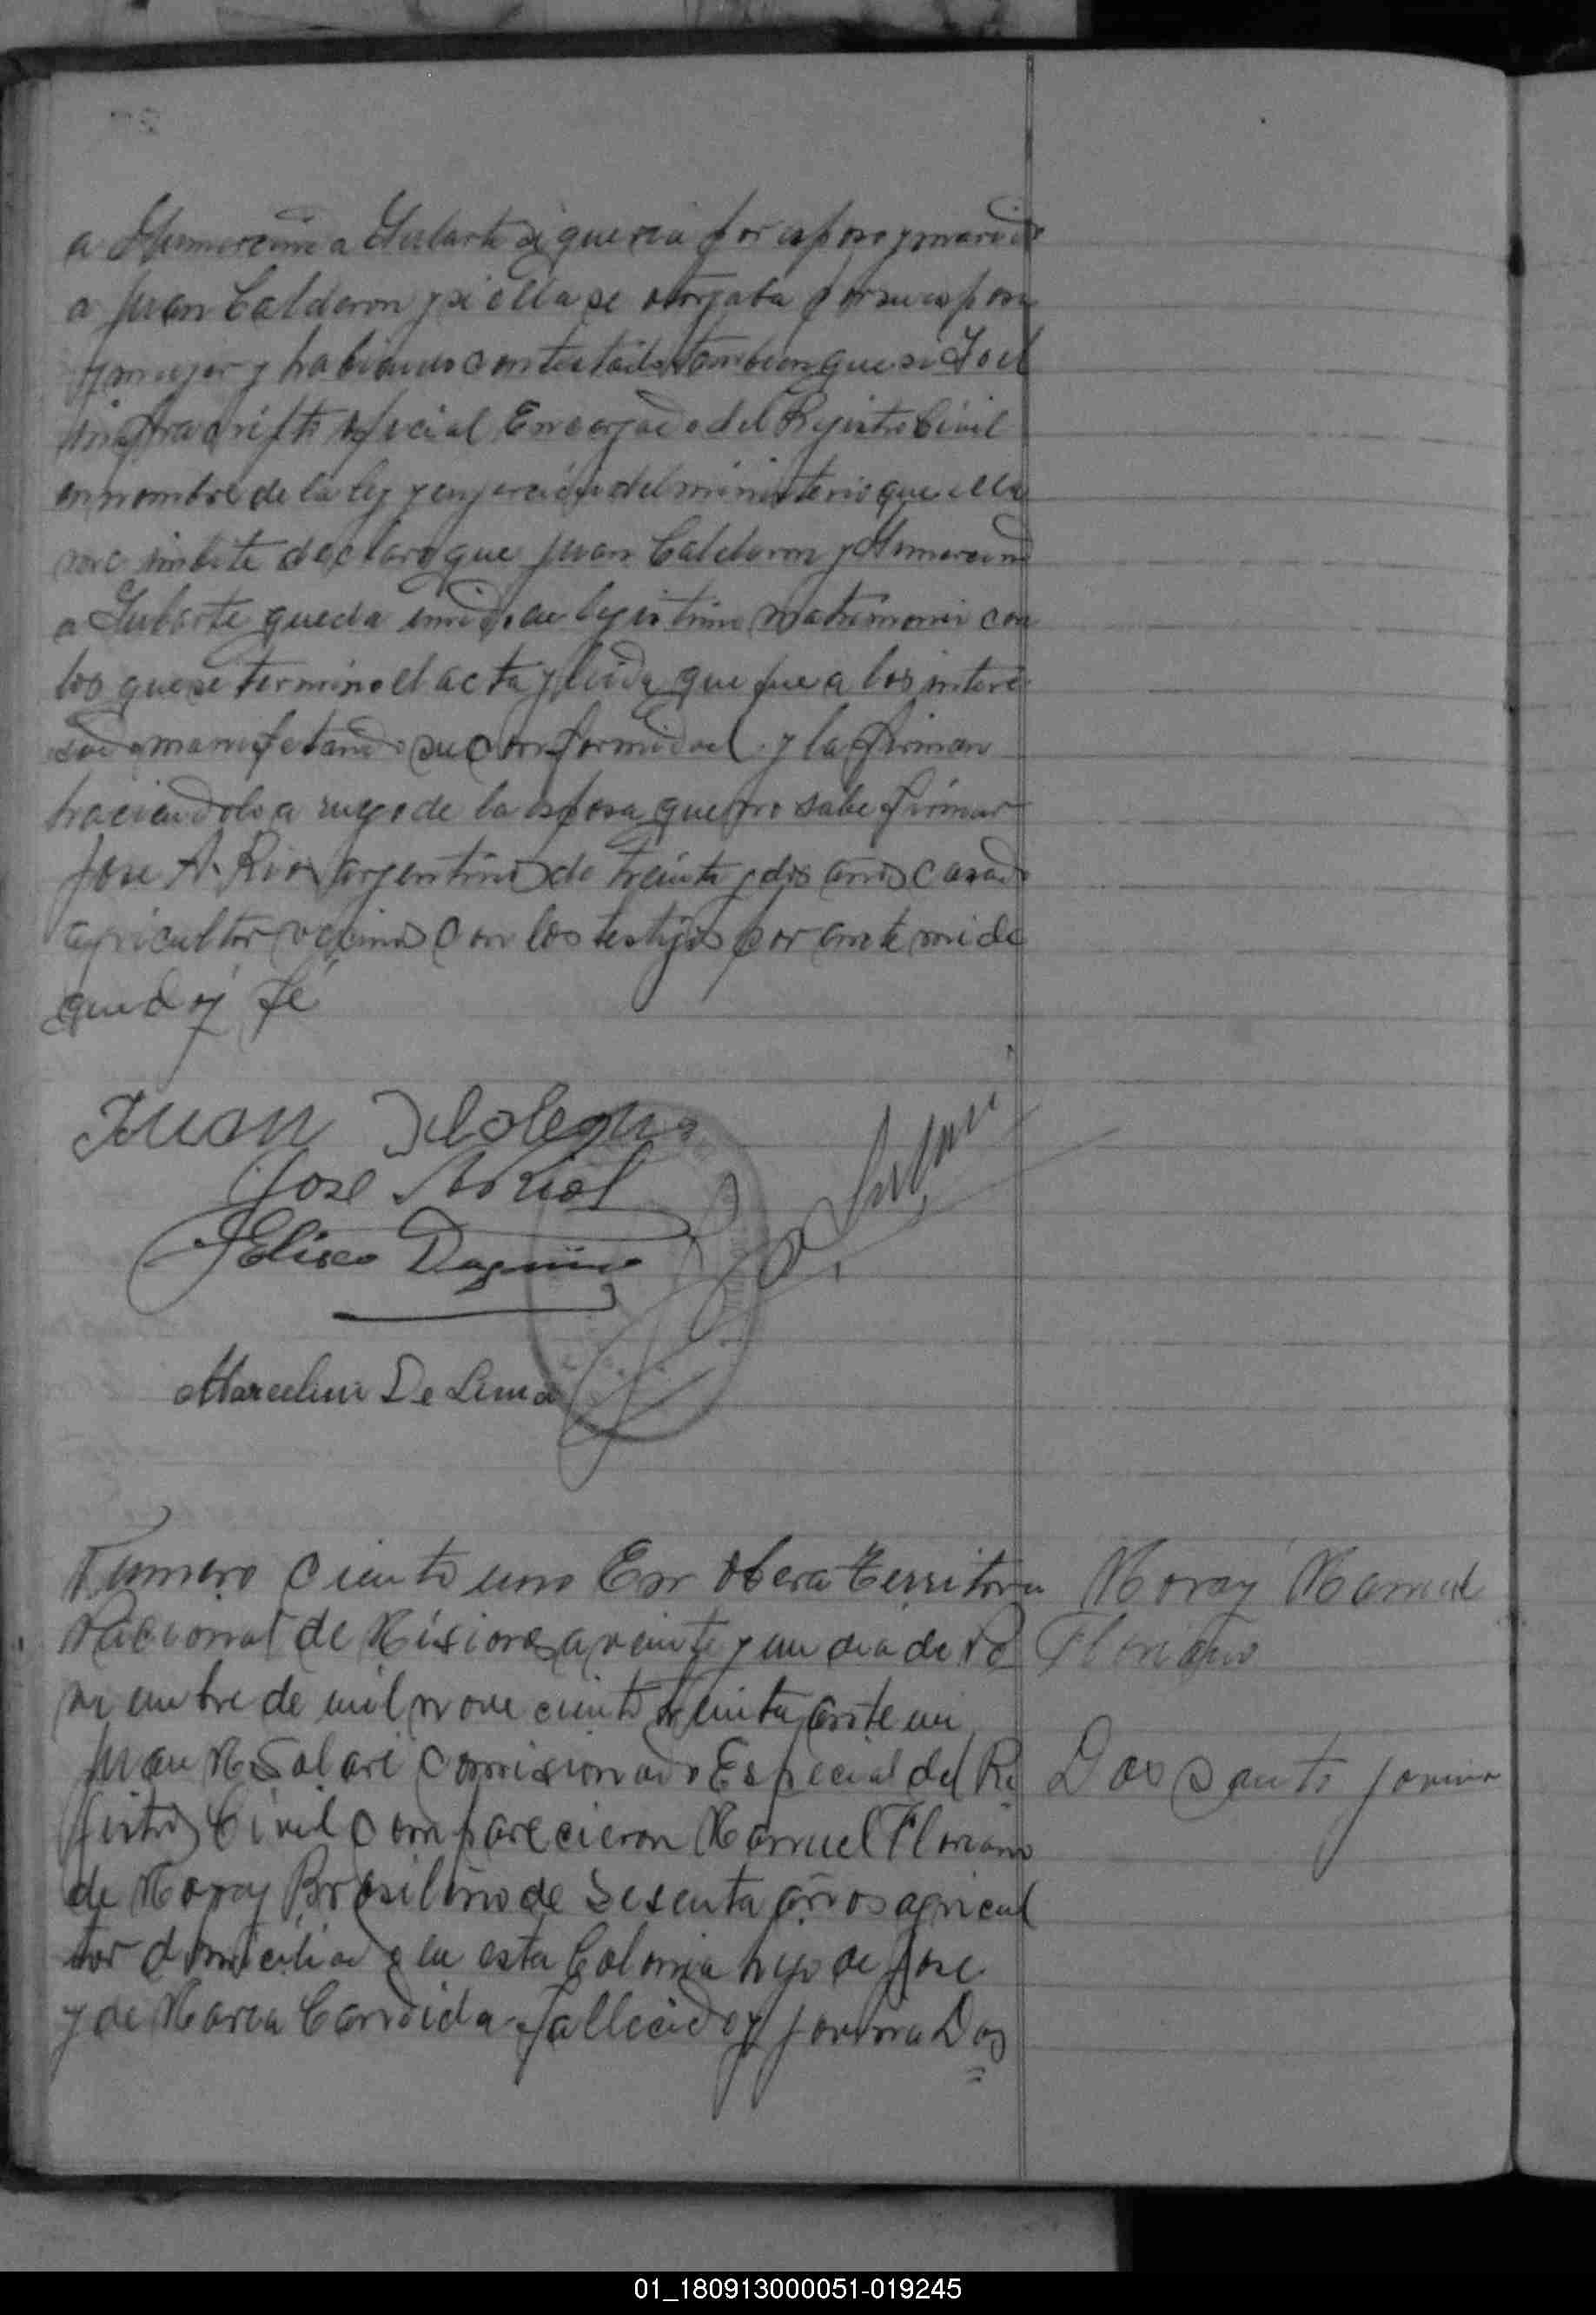 a Gumercinda Gularte si queria por esposo y marido
a Juan Calderon y si ella se otorgaba por su esposa
y mujer y habiendo contestado tambien que si Yo el
infrascripto oficial Encargado del Registro Civil
en nombre de la ley y en ejercicio del ministerio que ella
me declaro que Juan Calderon y Gumercind
a Gularte queda unido en legitimo matrimonio con
los que se termino el acta y leida que fue a los intere
sado manifestando su conformidad y la firman
haciendolo a ruego de la esposa que no sabe firmar
Jose A. Rios argentino de treinta y dos años casado
agricultor vecino con los testigos por ante mi de
que doy fé
Juan
Jose
Eliseo Dagnino
Marcelino De Lima
Numero Ciento uno En Obera Territorio
Nacional de Misiones a veinte y un dia de No
viembre de mil novecientos treinta ante mi
Juan N. Solari Comisionado Especial del Re
jistro Civil comparecieron Manuel Floriano
de Moray Brasilero de Sesenta años agricul
tor domiciliado en esta Colonia hijo de Jose
y de Maria Candida fallecido y Jovina Dos
Moray Manuel
Floriano
Dos Santo Jovina
01_180913000051-019245